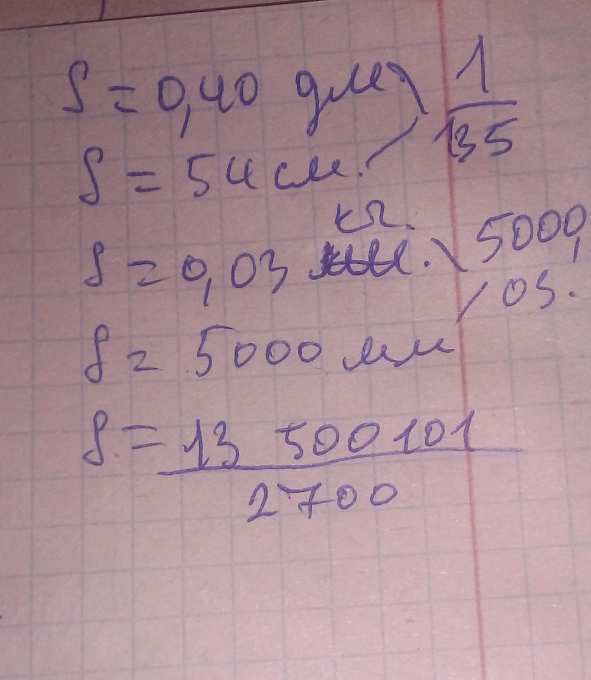 S = 0,40 дм \ 1/135
S = 54 см. /
кг.
S = 0,03 \ 5000,
/ 03.
S = 5000 мм
S = 13 500 101
2700